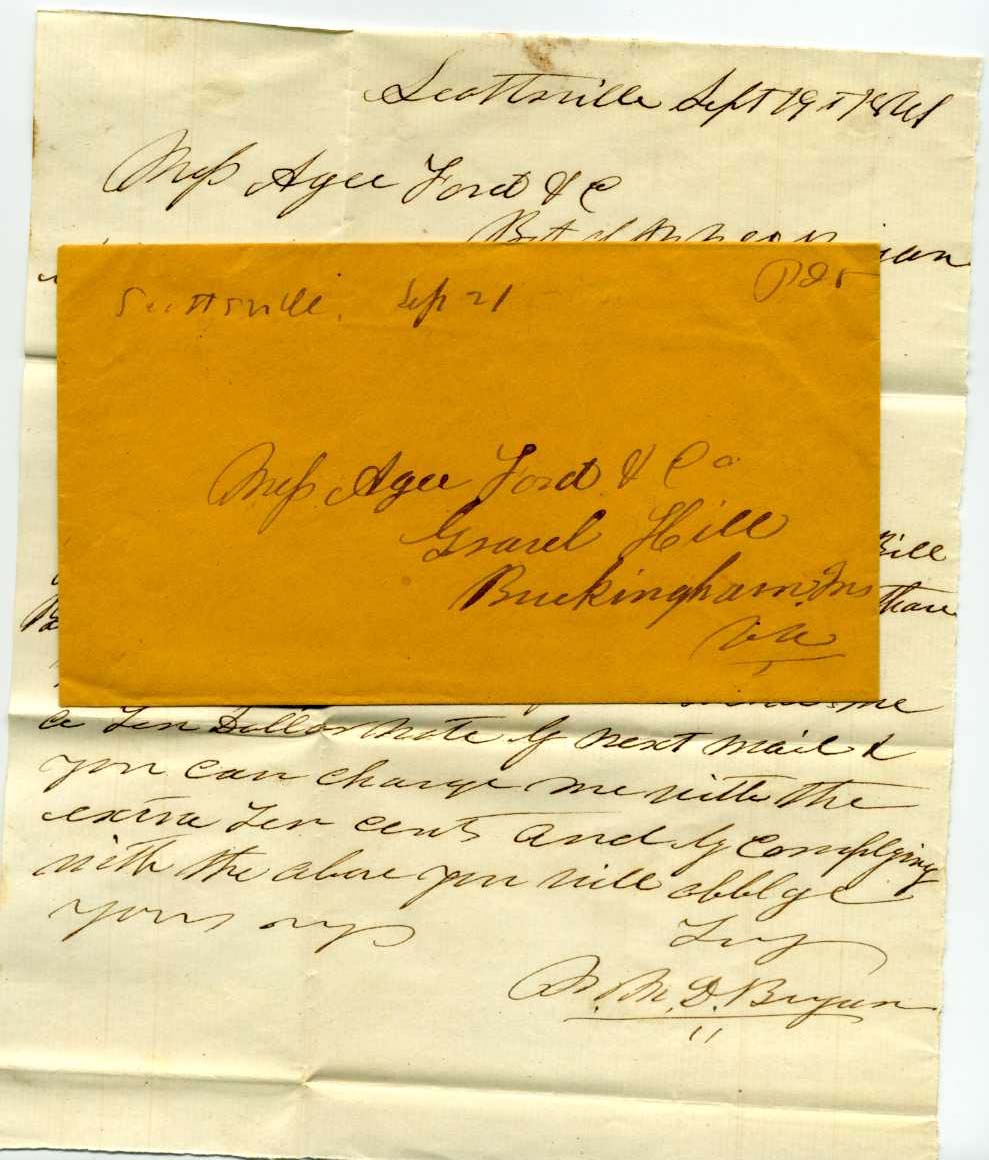 Scottsville Sept 19t 1861
Mess Agee Ford & C
Bot of
Scottsville. Sep 21
Mess Agee Ford & Co
Gravel Hill
Buckingham
Va
Bill
than
me
a Ten Dollar note by next mail &
you can charge me with the
extra Ten cents and by Complying
with the above you will obblge
yours
W. M. D. Bryan